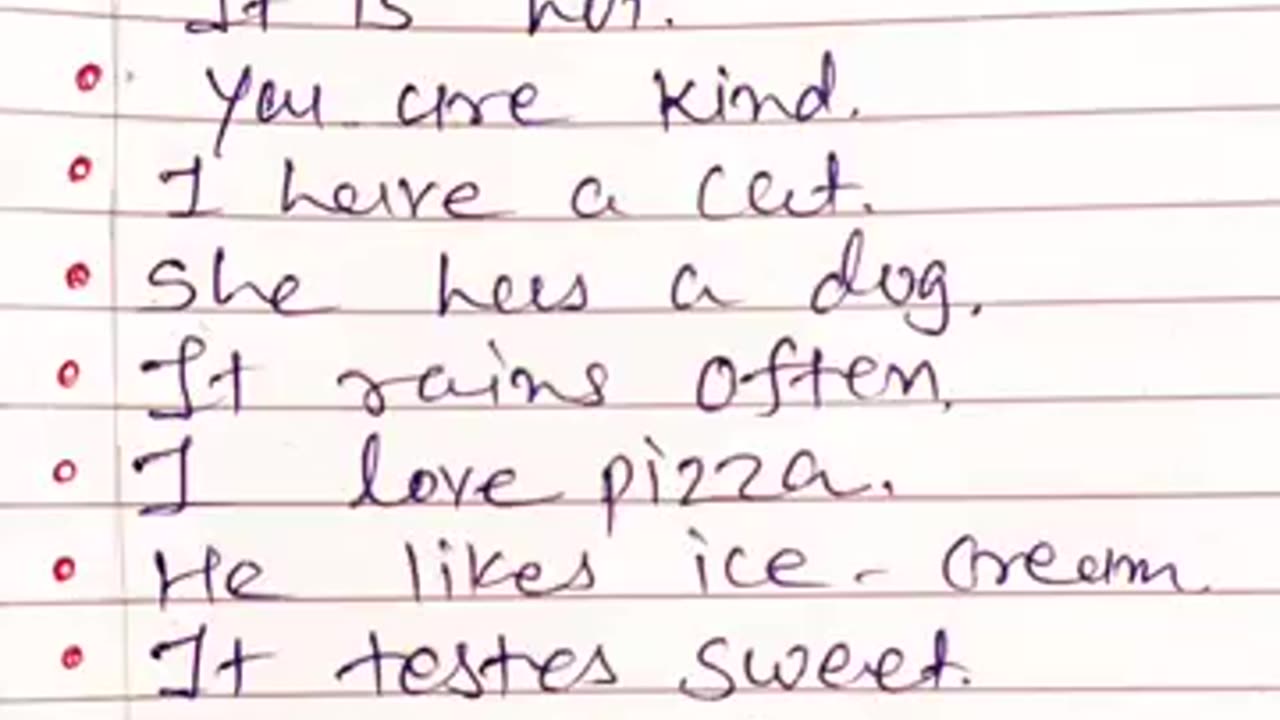 It is hot.
You are kind.
I have a cat.
She has a dog.
It rains often.
I love pizza.
He likes ice-cream
It testes sweet.